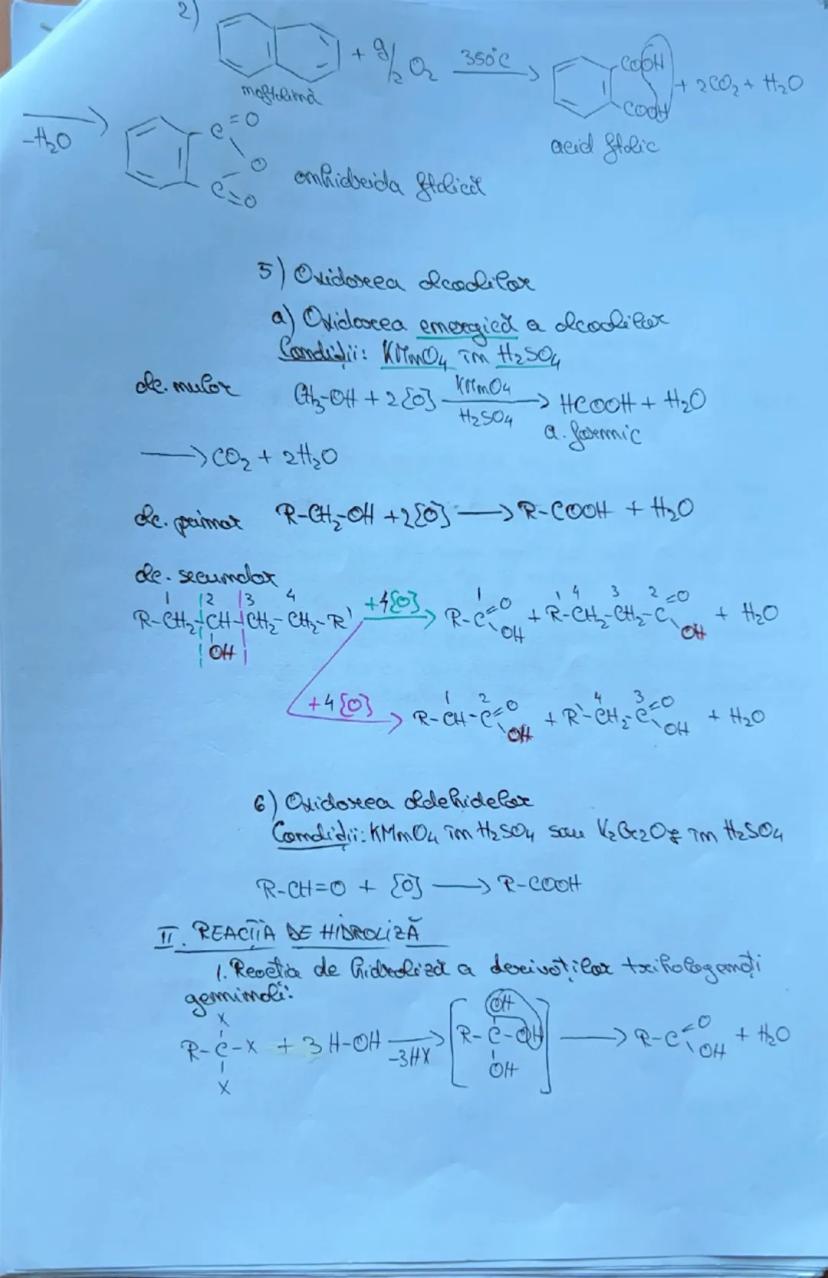 2)
+ 9/2 O₂ 350°C → COOH COOH + 2CO₂ + H₂O
naftalină
acid ftalic
-H₂O → C=O O C=O
anhidrida ftalică
5) Oxidarea alcoolilor
a) Oxidarea energică a alcoolilor
Condiții: KMnO₄ în H₂SO₄
alc. nular CH₃-OH + 2[O] KMnO₄ / H₂SO₄ → HCOOH + H₂O
a. formic
→ CO₂ + 2H₂O
alc. primar R-CH₂-OH + 2[O] → R-COOH + H₂O
alc. secundar
1 2 3 4
R-CH₂-CH-CH₂-CH₂-R' +4[O] → R-C=O OH + R'-CH₂-CH₂-C=O OH + H₂O
OH
+4[O] → R-CH-C=O OH + R'-CH₂-C=O OH + H₂O
6) Oxidarea aldehidelor
Condiții: KMnO₄ în H₂SO₄ sau K₂Cr₂O₇ în H₂SO₄
R-CH=O + [O] → R-COOH
II. REACȚIA DE HIDROLIZĂ
1. Reacția de hidroliză a derivaților trihalogenați
geminali:
X
R-C-X + 3 H-OH -3HX → [R-C-OH OH OH] → R-C=O OH + H₂O
X